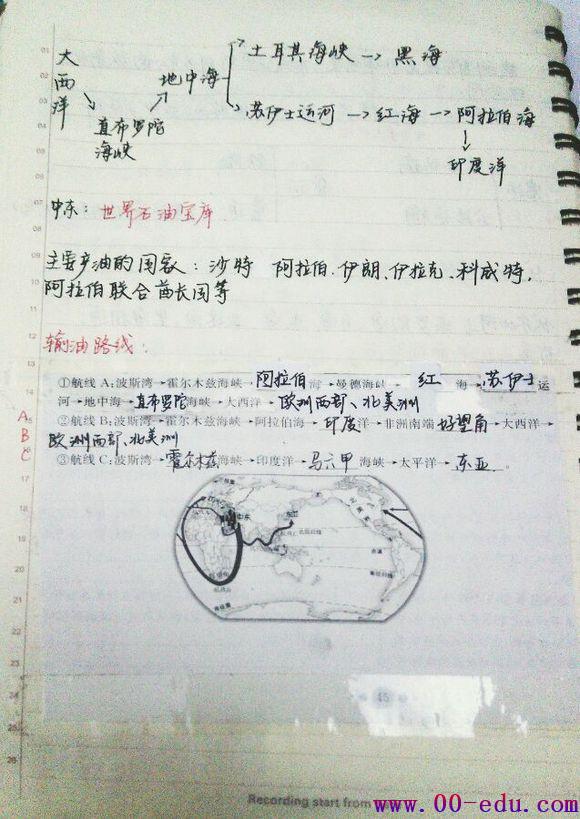 大西洋
直布罗陀海峡
地中海
土耳其海峡→黑海
苏伊士运河→红海→阿拉伯海
印度洋
中东：世界石油宝库
主要产油的国家：沙特 阿拉伯、伊朗、伊拉克、科威特、
阿拉伯联合酋长国等
输油路线：
①航线A：波斯湾→霍尔木兹海峡→阿拉伯海→曼德海峡→红海→苏伊士运
河→地中海→直布罗陀海峡→大西洋→欧洲西部、北美洲
②航线B：波斯湾→霍尔木兹海峡→阿拉伯海→印度洋→非洲南端好望角→大西洋→
欧洲西部、北美洲
③航线C：波斯湾→霍尔木兹海峡→印度洋→马六甲海峡→太平洋→东亚。
A
B
C
45
Recording start from
www.00-edu.com